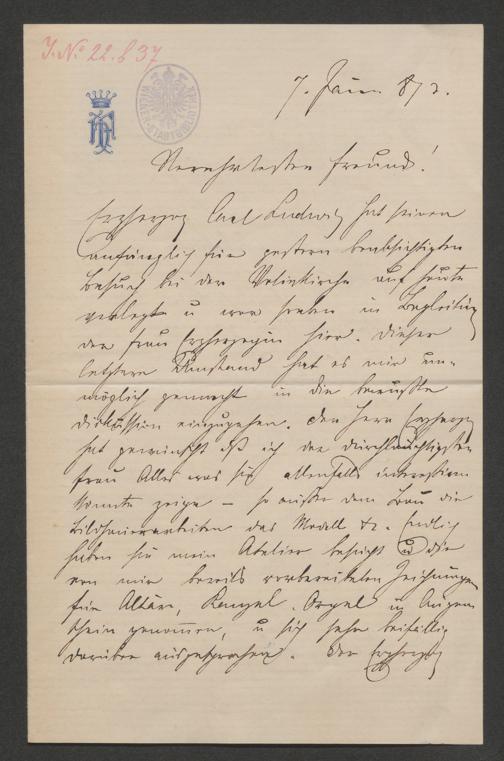 J. N.º 22.837
WIENER STADTBIBLIOTHEK
7. Juni 873.
Verehrtester Freund!
Erzherzog Carl Ludwig hat seinen
anfänglich für gestern beabsichtigten
Besuch bei der Votivkirche auf heute
verlegt u war soeben in Begleitung
der Frau Erzherzogin hier. Dieser
letztere Umstand hat es mir un-
möglich gemacht in die bewußte
Diskussion einzugehen. Der Herr Erzherzog
hat gewünscht daß ich der durchlauchtigsten
Frau Alles was sie allenfalls interessiren
könnte zeige – so außer dem Bau die
Bildhauerarbeiten das Modell etc. Endlich
haben sie mein Atelier besucht u die
von mir bereits vorbereiteten Zeichnungen
für Altäre, Kanzel, Orgel in Augen
schein genommen, u sich sehr beifällig
darüber ausgesprochen. Der Erzherzog